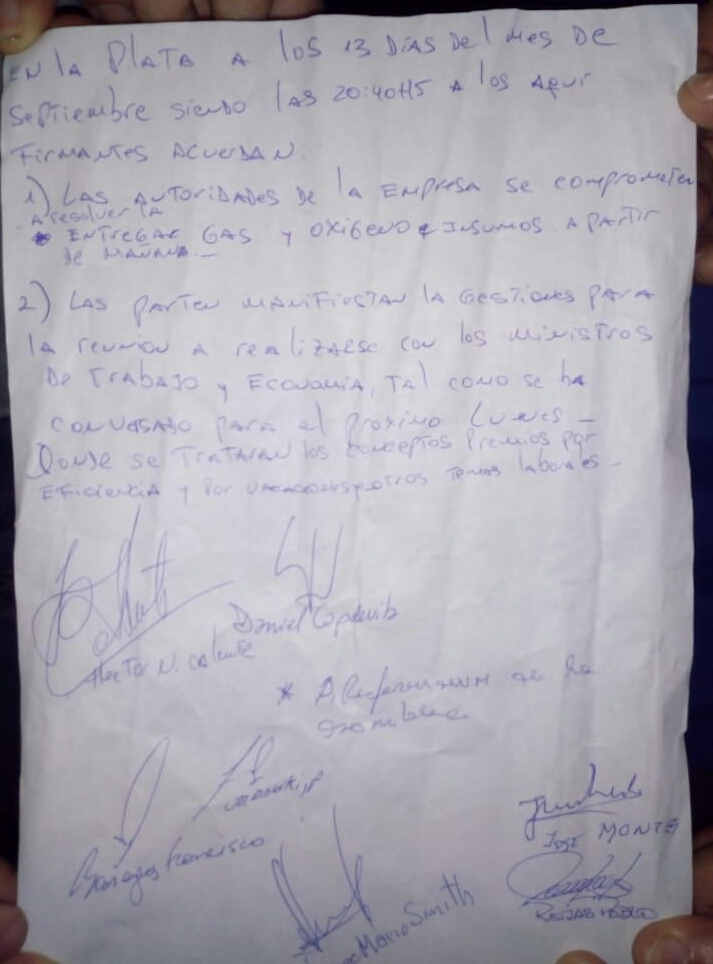 EN la Plata A los 13 Días Del Mes DE
Septiembre siendo las 20:40HS A los Aqui
FIRMANTES ACUERDAN.
1) LAS AUTORIDADES DE la EMPRESA se comprometen
A resolver la
ENTREGAR GAS y OXIGENO e INSUMOS A PARTIR
de MAÑANA.-
2) LAS PARTEN MANIFIESTAN la GESTIONES PARA
la reunion a realizarse con los MINISTROS
DE TRABAJO y ECONOMIA, TAL como se ha
CONVERSADO PARA el proximo LUNES.-
DONDE se TRATARAN los conceptos Premios por
EFICIENCIA y Por VACACIONES y otros TEMAS laborales-
Daniel
Hector N.
* de la
asamblea
Francisco
JOSE MONTE
Mario Smith
ROJAS PABLO